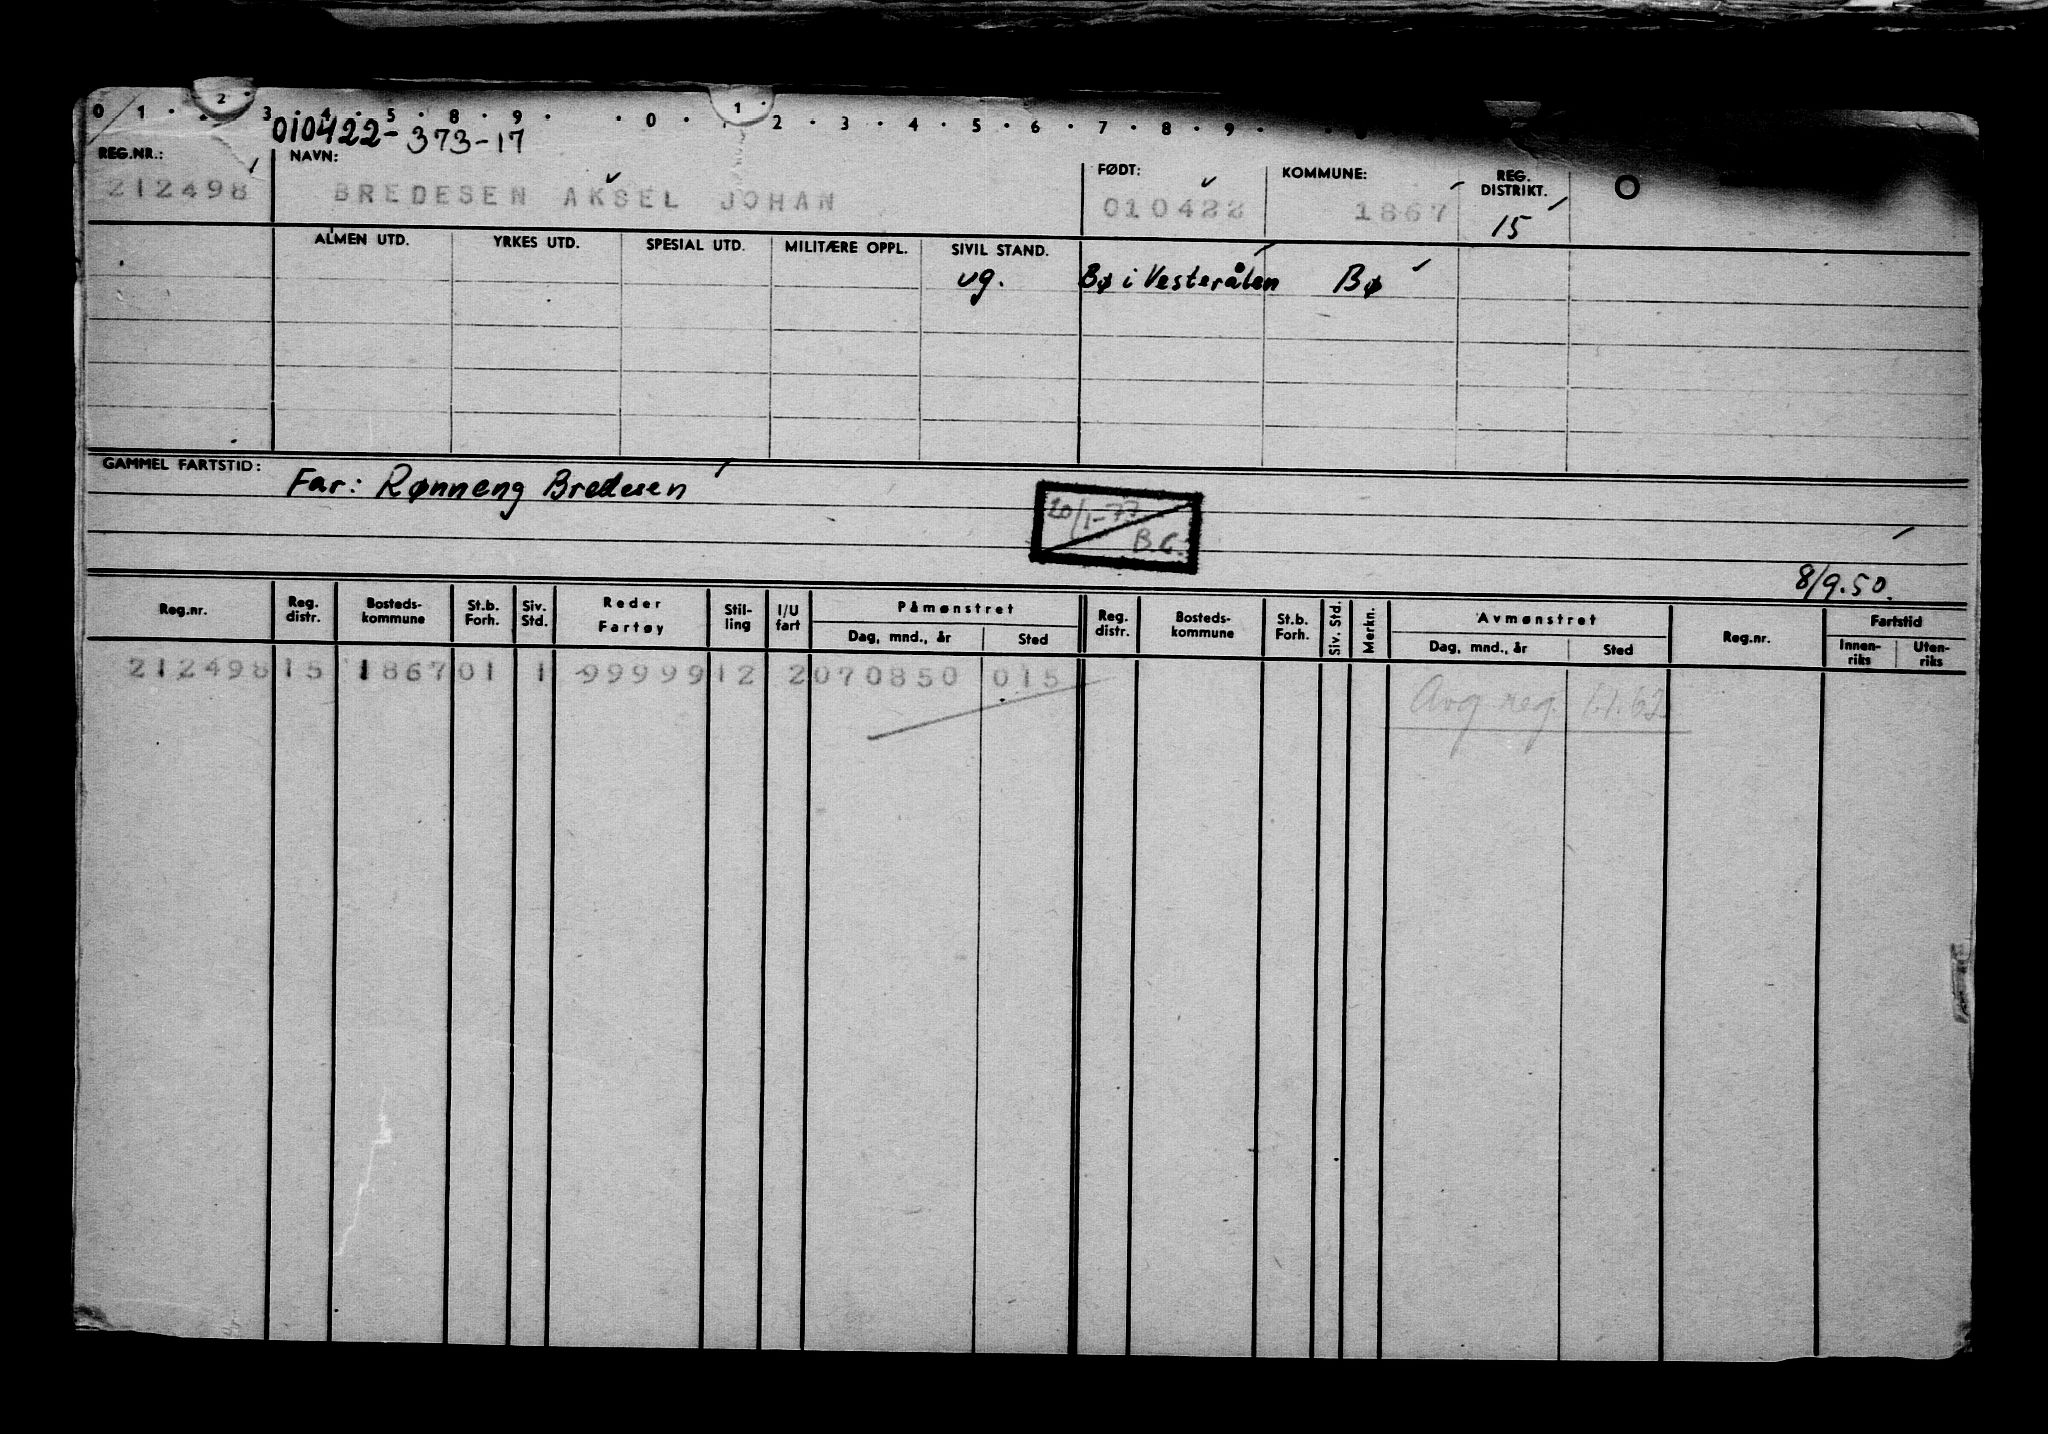 0 1 2 3 4 5 8 9 0 1 2 3 4 5 6 7 8 9
010422-373-17
REG.NR.: NAVN: FØDT: KOMMUNE: REG. DISTRIKT.
212498 BREDESEN AKSEL JOHAN 010422 1867 15
ALMEN UTD. YRKES UTD. SPESIAL UTD. MILITÆRE OPPL. SIVIL STAND.
ug. Bø i Vesterålen Bø
GAMMEL FARTSTID: Far: Rønneng Bredesen
20/1-77
B.C.
8/9.50.
Reg.nr. Reg. distr. Bosteds-kommune St.b. Forh. Siv. Std. Reder Fartøy Stil-ling I/U fart Påmønstret Dag, mnd., år Sted Reg. distr. Bosteds-kommune St.b. Forh. Siv. Std. Merkn. Avmønstret Dag, mnd., år Sted Reg.nr. Fartstid Innen-riks Uten-riks
212498 15 1867 01 1 99999 12 2 070850 015
Avg. reg.